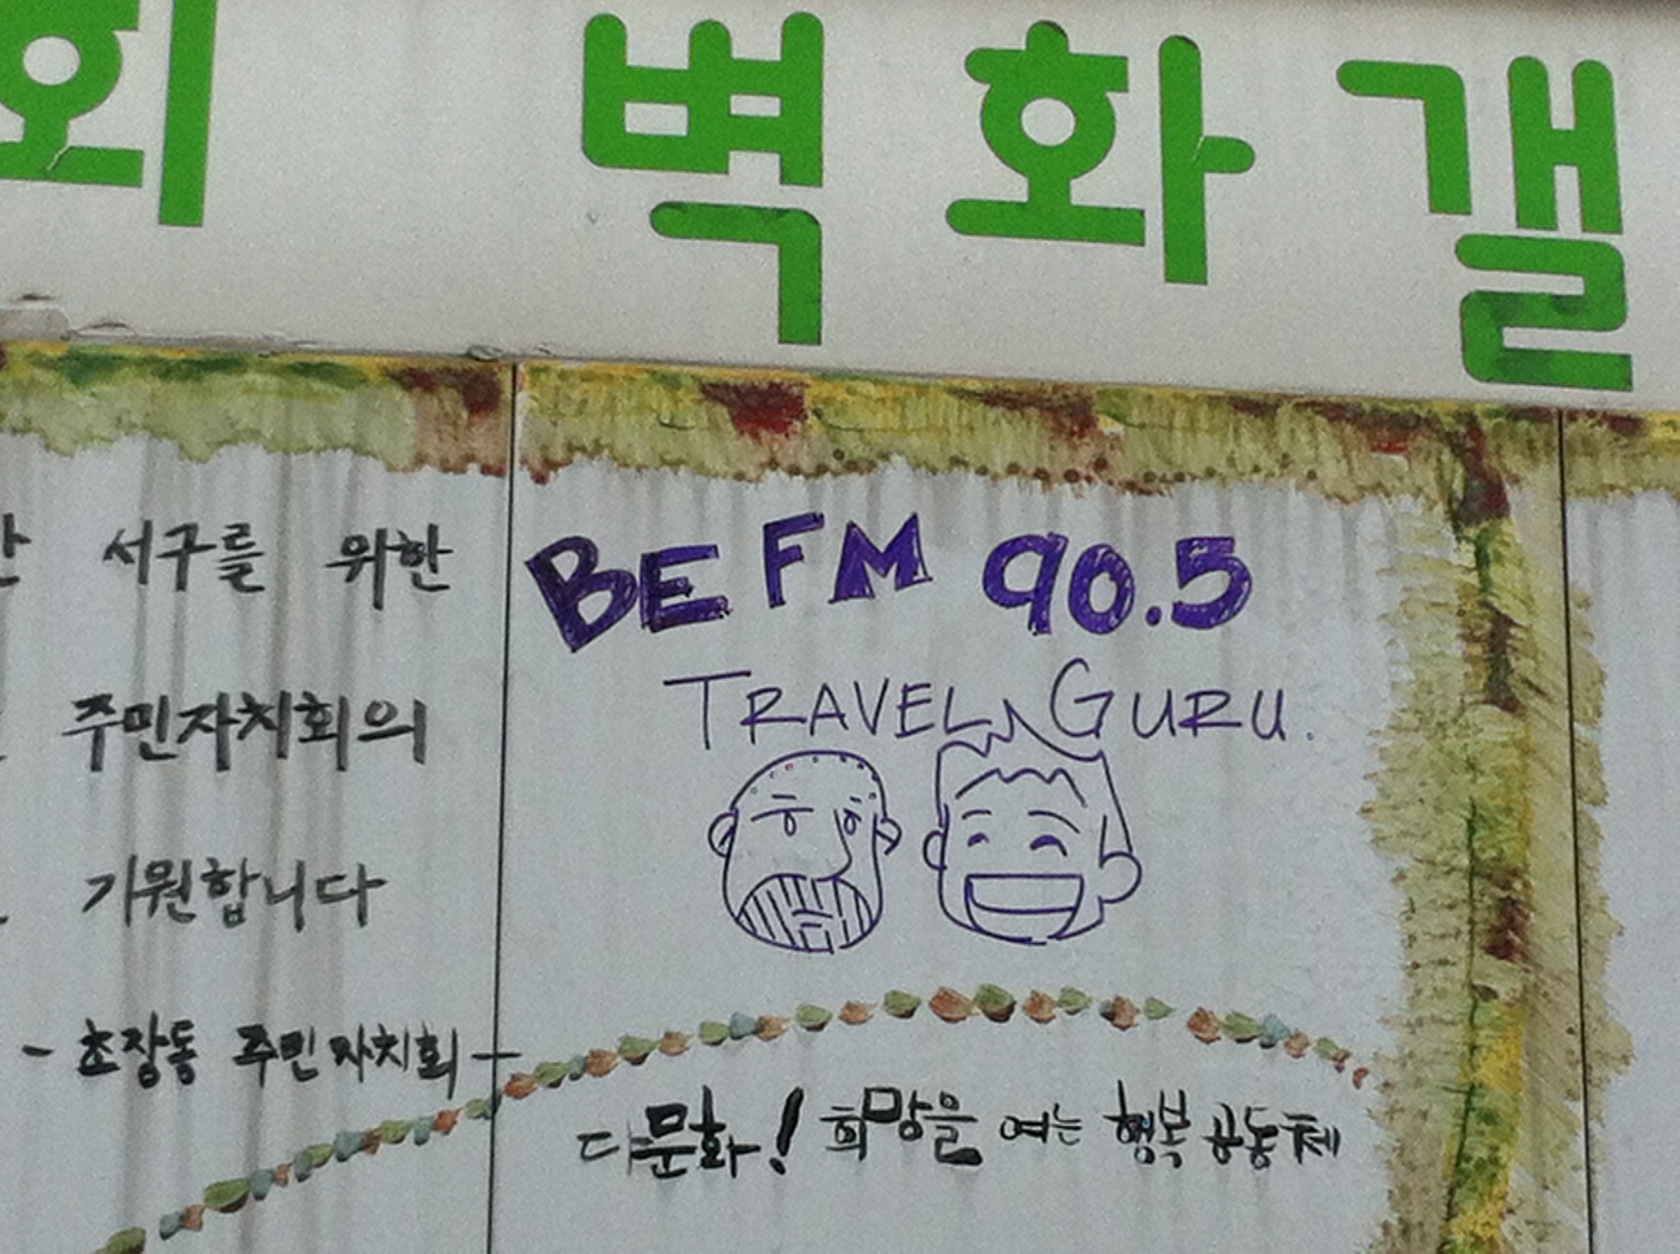 회 벽화갤
서구를 위한
주민자치회의
기원합니다
- 초장동 주민자치회 -
BE FM 90.5
TRAVEL GURU.
다문화! 희망을 여는 행복 공동체